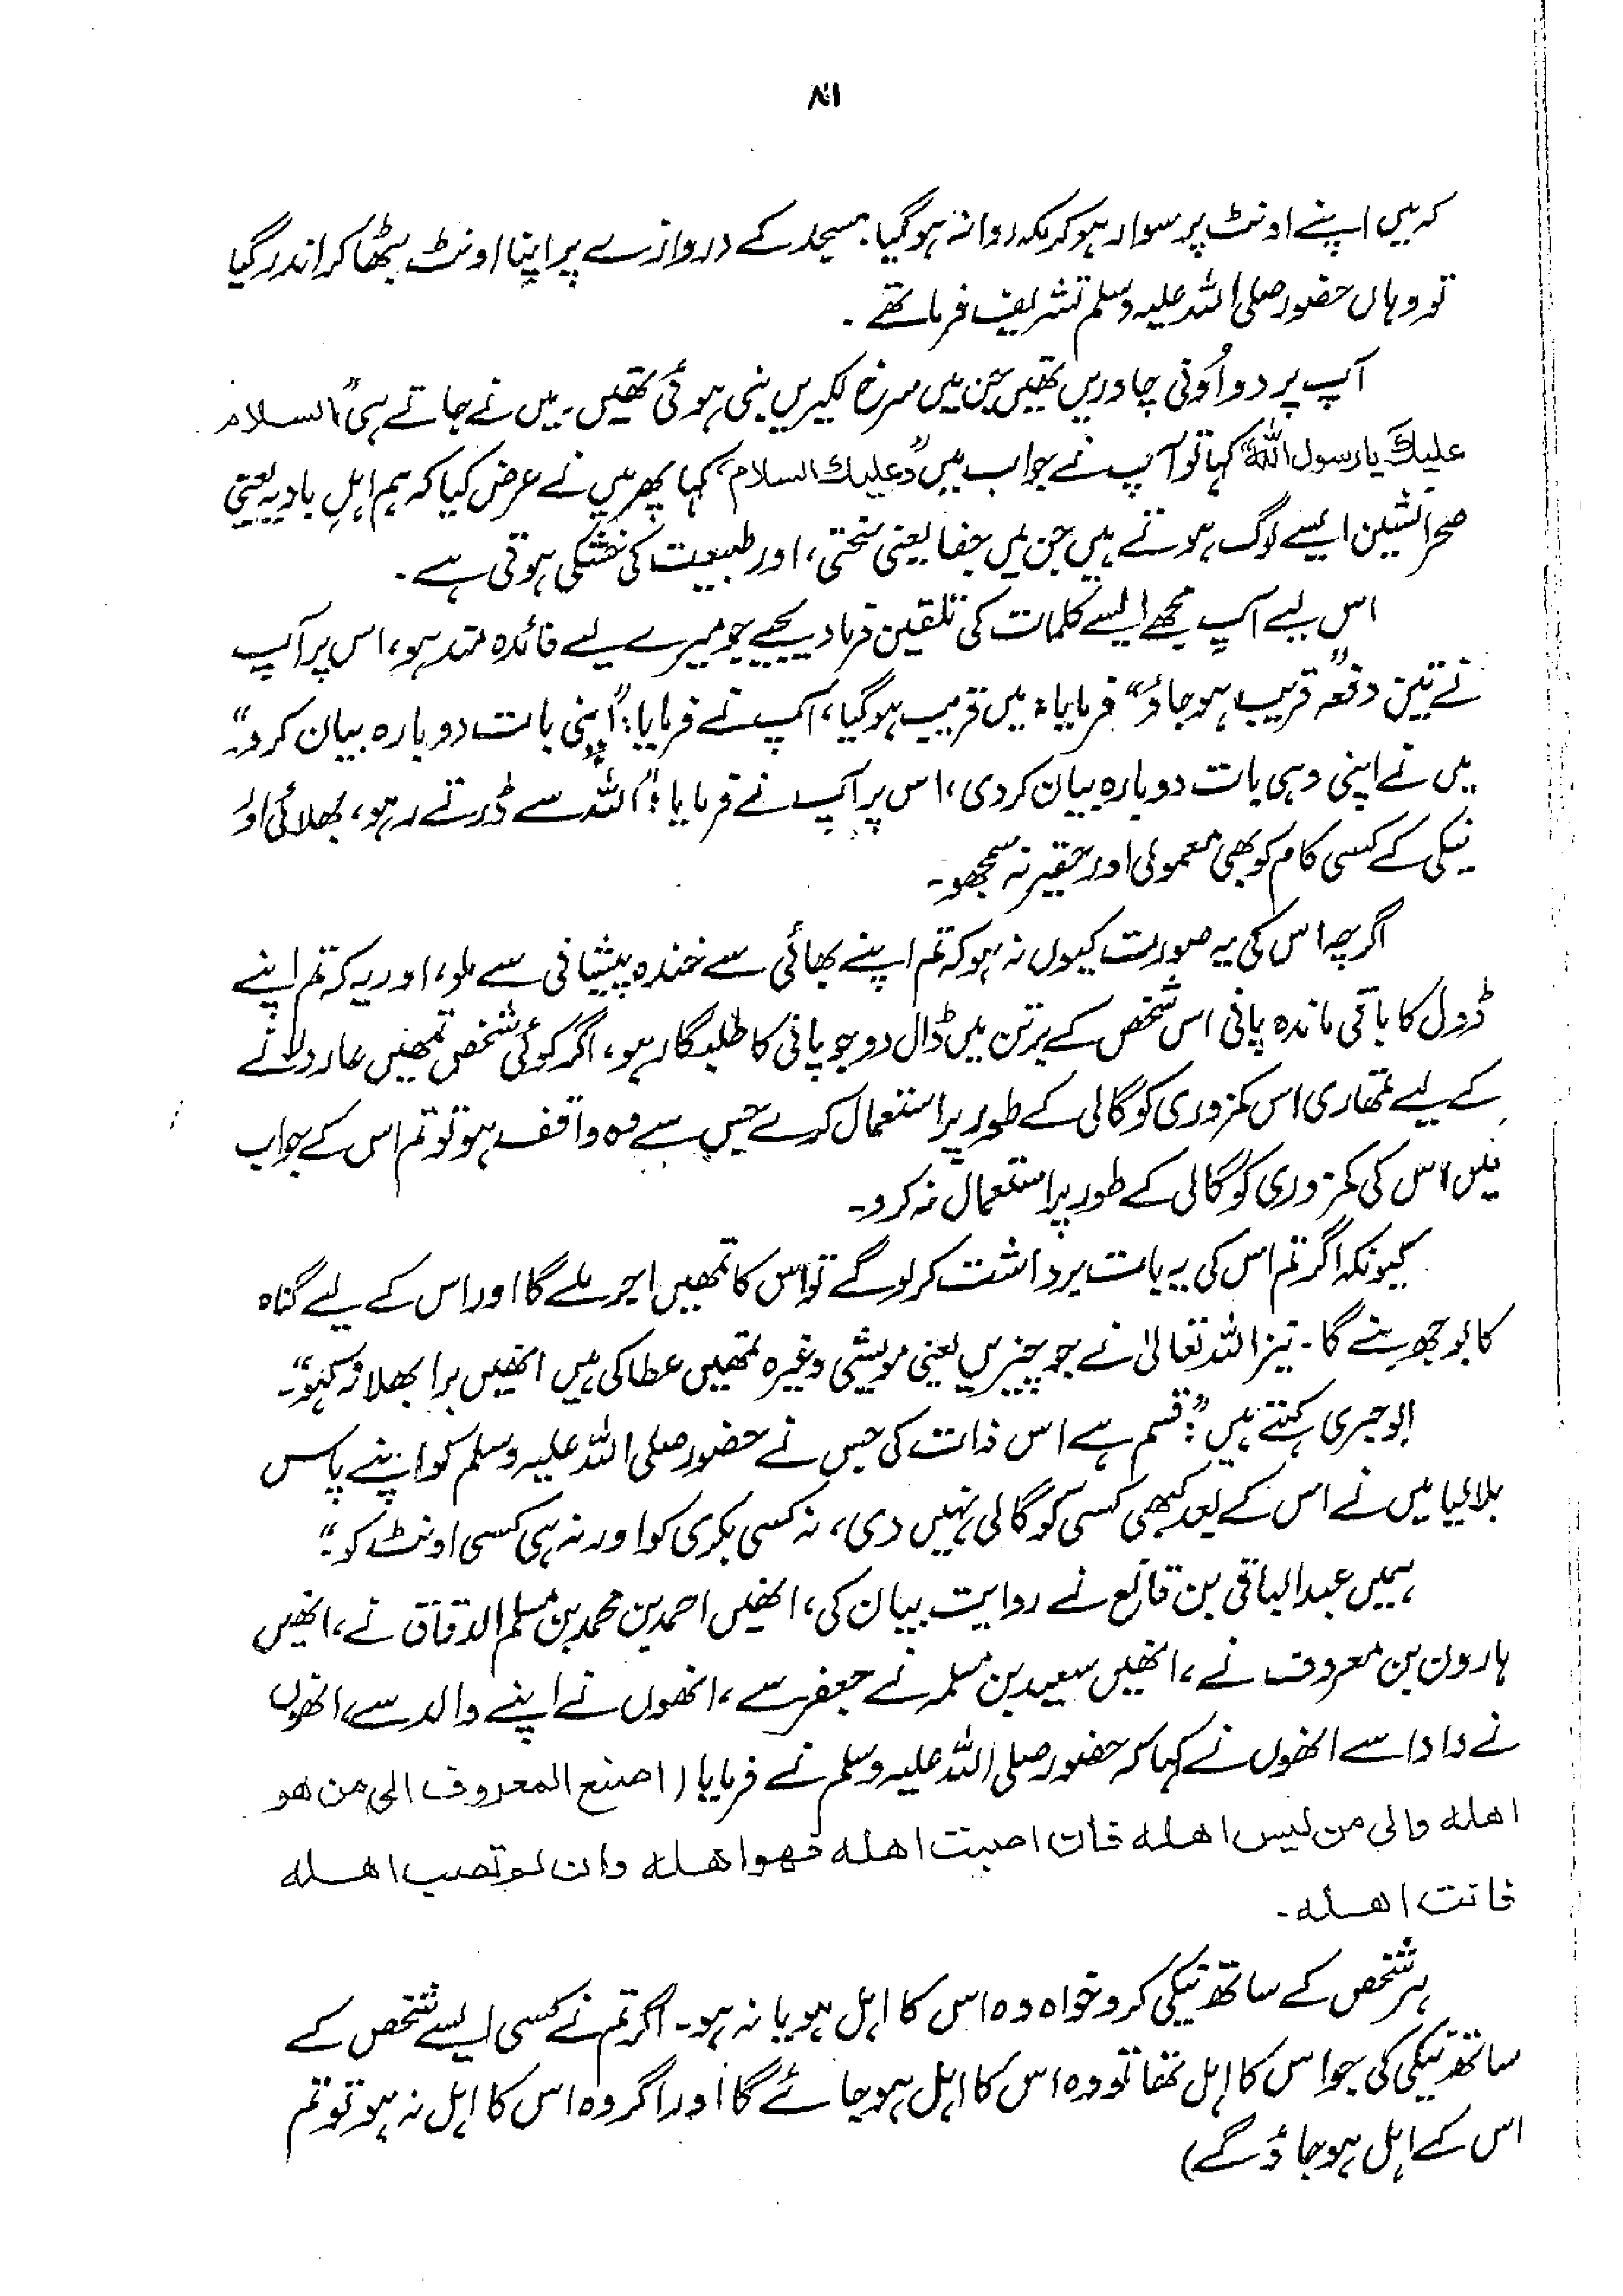 ۸۱
کہ میں اپنے اونٹ پر سوار ہو کر مکہ روانہ ہو گیا. مسجد کے دروازے پر اپنا اونٹ بٹھا کر اندر گیا
تو وہاں حضور صلی اللہ علیہ وسلم تشریف فرما تھے۔
آپ پر دو اُونی چادریں تھیں جن میں سرخ لکیریں بنی ہوئی تھیں۔ میں نے جاتے ہی "السلام
علیك یا رسول اللہ" کہا تو آپ نے جواب میں "وعلیك السلام" کہا پھر میں نے عرض کیا کہ ہم اہلِ بادیہ یعنی
صحرا نشین ایسے لوگ ہوتے ہیں جن میں جفا یعنی سختی، اور طبیعت کی خشکی ہوتی ہے۔
اس لیے آپ مجھے ایسے کلمات کی تلقین فرما دیجیے جو میرے لیے فائدہ مند ہو، اس پر آپ
نے تین دفعہ "قریب ہو جاؤ" فرمایا: میں قریب ہو گیا، آپ نے فرمایا: "اپنی بات دوبارہ بیان کرو۔"
میں نے اپنی وہی بات دوبارہ بیان کر دی، اس پر آپ نے فرمایا: "اللہ سے ڈرتے رہو، بھلائی اور
نیکی کے کسی کام کو بھی معمولی اور حقیر نہ سمجھو۔
اگرچہ اس کی یہ صورت کیوں نہ ہو کہ تم اپنے بھائی سے خندہ پیشانی سے ملو، اور یہ کہ تم اپنے
ڈول کا باقی ماندہ پانی اس شخص کے برتن میں ڈال دو جو پانی کا طلبگار ہو، اگر کوئی شخص تمھیں عار دلانے
کے لیے تمھاری اس کمزوری کو گالی کے طور پر استعمال کرے جس سے وہ واقف ہو تو تم اس کے جواب
میں اس کی کمزوری کو گالی کے طور پر استعمال نہ کرو۔
کیونکہ اگر تم اس کی یہ بات برداشت کر لو گے تو اس کا تمھیں اجر ملے گا اور اس کے لیے گناہ
کا بوجھ بنے گا۔ نیز اللہ تعالیٰ نے جو چیزیں یعنی مویشی وغیرہ تمھیں عطا کی ہیں انھیں برا بھلا نہ کہو"۔
ابوجری کہتے ہیں: "قسم ہے اس ذات کی جس نے حضور صلی اللہ علیہ وسلم کو اپنے پاس
بلا لیا میں نے اس کے بعد کبھی کسی کو گالی نہیں دی، نہ کسی بکری کو اور نہ ہی کسی اونٹ کو۔"
ہمیں عبدالباقی بن قانع نے روایت بیان کی، انھیں احمد بن محمد بن مسلم الدقاق نے، انھیں
ہارون بن معروف نے، انھیں سعید بن مسلمہ نے جعفر سے، انھوں نے اپنے والد سے، انھوں
نے دادا سے انھوں نے کہا کہ حضور صلی اللہ علیہ وسلم نے فرمایا (اصنع المعروف الی من هو
اهله والی من لیس اهله فان اصبت اهله فهو اهله وان لم تصب اهله
فانت اهله۔
ہر شخص کے ساتھ نیکی کرو خواہ وہ اس کا اہل ہو یا نہ ہو۔ اگر تم نے کسی ایسے شخص کے
ساتھ نیکی کی جو اس کا اہل تھا تو وہ اس کا اہل ہو جائے گا اور اگر وہ اس کا اہل نہ ہو تو تم
اس کے اہل ہو جاؤ گے)